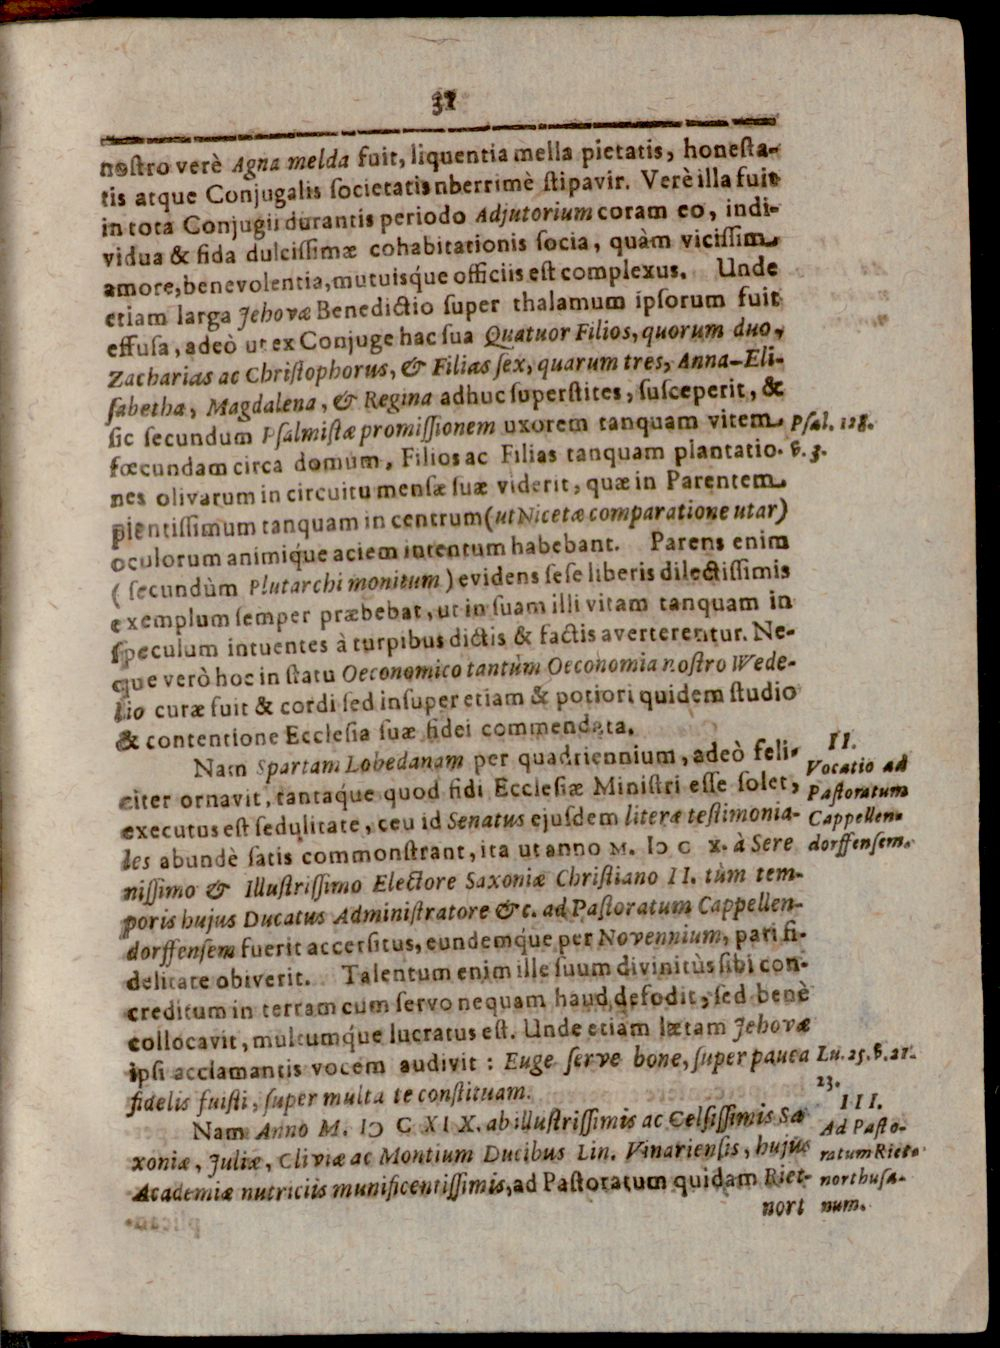 31
noſtro verè Agna melda fuit, liquentia mella pietatis, honeſta-
tis atque Conjugalis ſocietatis nberrimè ſtipavir. Verè illa fuit
in tota Conjugii durantis periodo Adjutorium coram eo, indi-
vidua & fida dulciſſimæ cohabitationis ſocia, quàm viciſſim
amore, benevolentia, mutuisque officiis eſt complexus. Unde
etiam larga Jehovæ Benedictio ſuper thalamum ipſorum fuit
effuſa, adeò ut ex Conjuge hac ſua Quatuor Filios, quorum duo,
Zacharias ac Chriſtophorus, & Filias ſex, quarum tres, Anna-Eli-
ſabetha, Magdalena, & Regina adhuc ſuperſtites, ſuſceperit, &
ſic ſecundum Pſalmiſtæ promiſſionem uxorem tanquam vitem
Pſal. 128.
fœcundam circa domum, Filios ac Filias tanquam plantatio-
v. 3.
nes olivarum in circuitu menſæ ſuæ viderit, quæ in Parentem
pientiſſimum tanquam in centrum (ut Nicetæ comparatione utar)
oculorum animique aciem intentum habebant. Parens enim
(ſecundùm Plutarchi monitum) evidens ſeſe liberis dilectiſſimis
exemplum ſemper præbebat, ut in ſuam illi vitam tanquam in
ſpeculum intuentes à turpibus dictis & factis averterentur. Ne-
que verò hoc in ſtatu Oeconomico tantùm Oeconomia noſtro Wede-
lio curæ fuit & cordi ſed inſuper etiam & potiori quidem ſtudio
& contentione Eccleſia ſuæ fidei commendata.
II.
Vocatio ad
Paſtoratum
Cappellen-
dorffenſem.
Nam Spartam Lobedanam per quadriennium, adeò feli-
citer ornavit, tantaq́ue quod fidi Eccleſiæ Miniſtri eſſe ſolet,
executus eſt ſedulitate, ceu id Senatus ejuſdem literæ teſtimonia-
les abundè ſatis commonſtrant, ita ut anno M. IↃ C X. à Sere
niſſimo & Illuſtriſſimo Electore Saxoniæ Chriſtiano II. tùm tem-
poris hujus Ducatus Adminiſtratore &c. ad Paſtoratum Cappellen-
dorffenſem fuerit accerſitus, eundemq́ue per Novennium, pari fi-
delitate obiverit. Talentum enim ille ſuum divinitùs ſibi con-
creditum in terram cum ſervo nequam haud defodit, ſed benè
collocavit, multumq́ue lucratus eſt. Unde etiam lætam Jehovæ
ipſi acclamantis vocem audivit : Euge ſerve bone, ſuper pauca
Lu. 25. v. 21.
23.
fidelis fuiſti, ſuper multa te conſtituam.
III.
Ad Paſto-
ratum Riet-
northuſa-
num.
Nam Anno M. IↃ C XIX. ab illuſtriſſimis ac Celſiſſimis Sa
xoniæ, Juliæ, Cliviæ ac Montium Ducibus Lin. Vinarienſis, hujus
Academiæ nutriciis munificentiſſimis, ad Paſtoratum quidam Riet-
nort